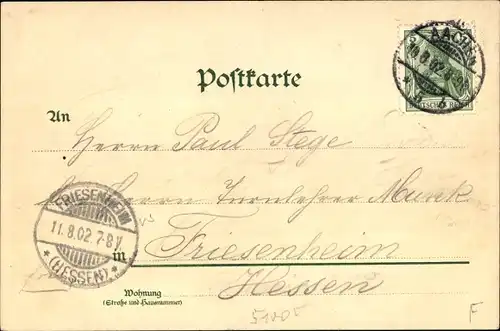 AACHEN
10.8.02.
DEUTSCHES REICH
Postkarte
An
Herrn Paul Stege
Herrn Turnlehrer Munk
FRIESENHEIM
11.8.02.7-8V.
* (HESSEN) *
in Friesenheim
Hessen
Wohnung
(Straße und Hausnummer)
F